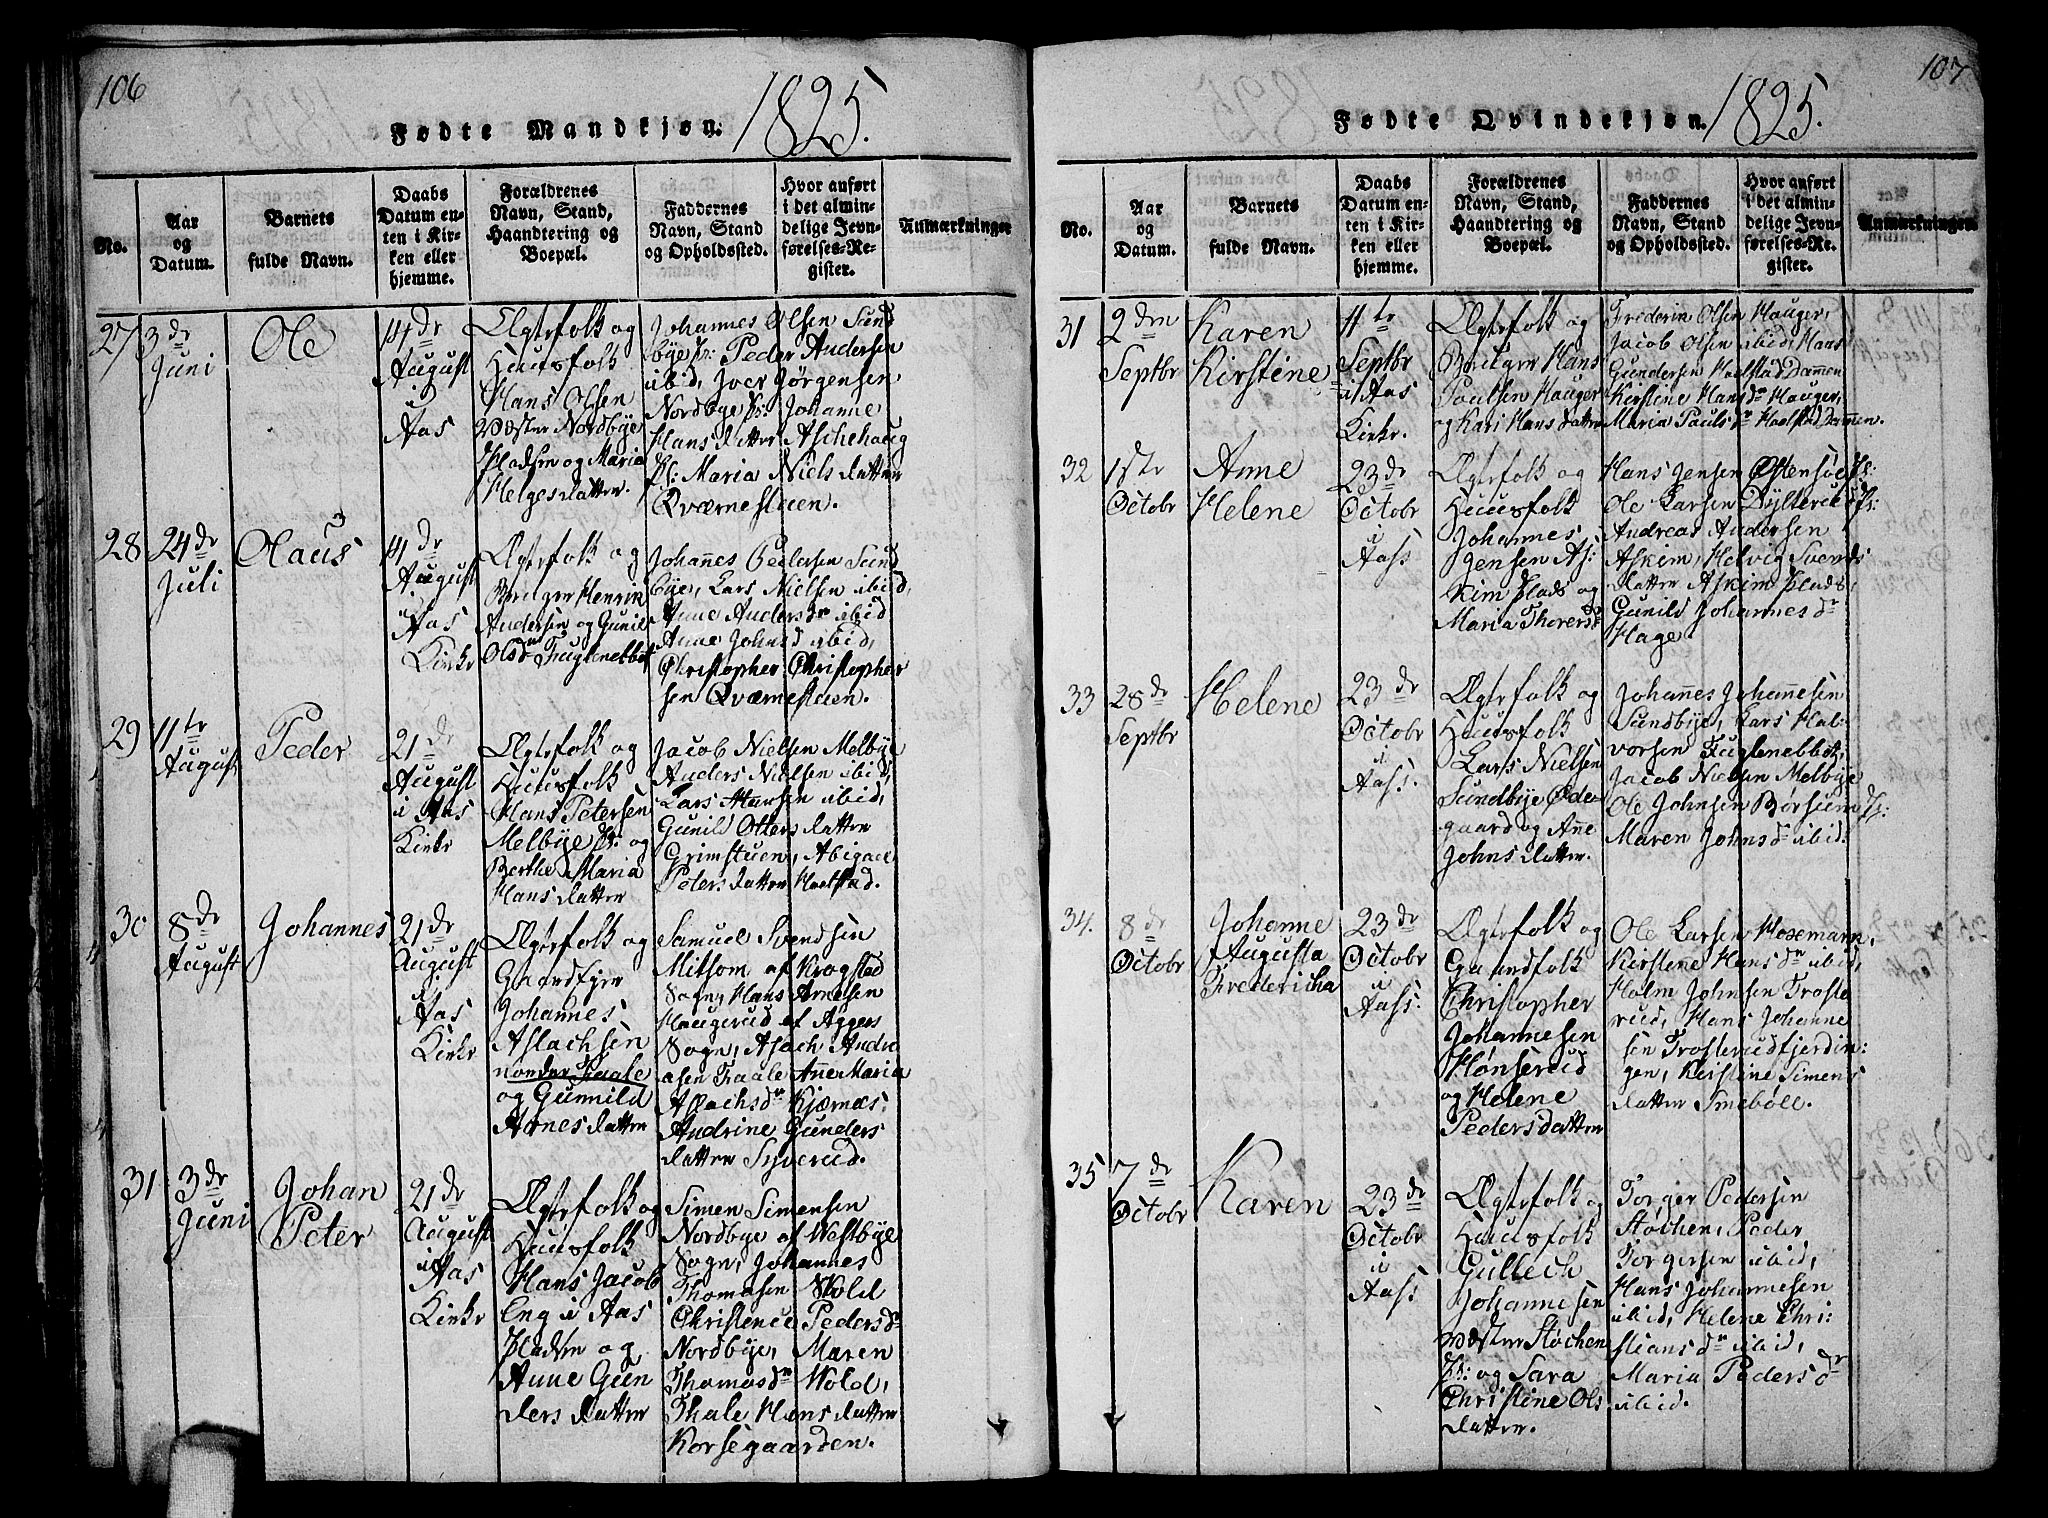 106
1825.
Fødte Mandkjøn.
No.
Aar
og
Datum.
Barnets
fulde Navn.
Daabs
Datum en-
ten i Kir-
ken eller
hjemme.
Forældrenes
Navn, Stand,
Haandtering og
Boepæl.
Faddernes
Navn, Stand
og Opholdssted.
Hvor anført
i det almin-
delige Jevn-
førelses-Re-
gister.
Anmærkninger
27
3dr
Juni
Ole
14dr
August
i
Aas
Ægtefolk og
Huusfolk
Hans Olsen
Vester Nordbye
Pladsen og Maria
Helgesdatter.
Johannes Olsen Sund
bye Pl: Peder Andersen
ibid, Iver Jørgensen
Nordbye Pl: Johanne
Hansdatter Aschehoug
Pl: Maria Nielsdatter
Qværnestuen.
28
24dr
Juli
Olaus
14dr
August
i
Aas
Kirke
Ægtefolk og
Brulger Henrik
Andersen og Gunil
Olsdr Fuglenebbet
Johannes Pedersen Sund
bye, Lars Nielsen ibid,
Anne Andersdr ibid
Anne Johnsd ibid,
Christopher Christopher
sen Qværnestuen.
29
11te
August
Peder
21dr
August
i Aas
Kirke
Ægtefolk og
Huusfolk
Hans Petersen
Melbye Pl: og
Berthe Maria
Hansdatter
Jacob Nielsen Melbye
Anders Nielsen ibid,
Lars Hansen ibid,
Gunild Ottersdatter
Grimstuen, Abigael
Petersdatter Haelstad.
30
8dr
August
Johannes
21dr
August
i
Aas
Kirke
Ægtefolk og
Gaardfger
Johannes
Aslachsen
nordre Fraale
og Gunnild
Arnesdatter
Samuel Svendsen
Mitsom af Krogstad
Sogn, Hans Arnesen
Haugerud af Aggers
Sogn, Aslach Andre
asen Fraale, Anne Maria
Aslachsdr Kjærnæs,
Andrine Gunders
datter Syverud.
31
3dr
Juni
Johan
Peter
21dr
August
i
Aas
Kirke
Ægtefolk og
Huusfolk
Hans Jacob
Eng i Aas
Pladsen og
Anne Gun
dersdatter
Simen Simensen
Nordbye af Westbye
Sogn, Johannes
Thomasen Wold
Christence Pedersd
Nordbye, Maren
Thomasdr Wold,
Thale Hansdatter
Korsegaarden.
107
1825.
Fødte Qvindekjøn.
No.
Aar
og
Datum.
Barnets
fulde Navn.
Daabs
Datum en-
ten i Kir-
ken eller
hjemme.
Forældrenes
Navn, Stand,
Haandtering og
Boepæl.
Faddernes
Navn, Stand
og Opholdssted.
Hvor anført
i det almin-
delige Jevn-
førelses-Re-
gister.
Anmærkninger
31
2den
Septbr
Karen
Kirstine
11te
Septbr
i Aas
Kirke.
Ægtefolk og
Brulger Hans
Paulsen Hauger
og Kari Hansdatter
Frederik Olsen Hauger,
Jacob Olsen ibid, Hans
Gundersen Haelstad Dammen
Kirstine Hansdr Hauger,
Maria Paulsdr Haelstad Dammen.
32
1ste
Octobr
Anne
Helene
23dr
Octobr
i
Aas:
Ægtefolk og
Huusfolk
Johannes
Jensen As:
kim Plads og
Maria Thoresd
Hans Jensen Østensøe Pl:
Ole Larsen Dyster Pl:
Andreas Andersen
Askim, Helvig Svends
datter Askim Plads,
Gunild Johannesdr
Hage.
33
28dr
Septbr
Helene
23dr
Octobr
i
Aas:
Ægtefolk og
Huusfolk
Lars Nielsen
Sundbye Øde-
gaard og Anne
Johnsdatter.
Johannes Johannesen
Sundbye, Lars Hal-
vorsen Fuglenebbet,
Jacob Nielsen Melbye
Ole Johnsen Børsum Pl:
Maren Johnsdr ibid.
34.
8dr
Octobr
Johanne
Augusta
Fredericha
23dr
Octobr
i
Aas:
Ægtefolk og
Gaardfolk
Christopher
Johannesen
Hønserud
og Helene
Pedersdatter
Ole Larsen Hosemarn,
Kirstene Hansdr ibid,
Holm Johnsen Troste
rud, Hans Johanne
sen Trosterudfjerdin:
gen, Kirstine Simens
datter Smebøll.
35
7dr
Octobr
Karen
23dr
Octobr
i
Aas:
Ægtefolk og
Huusfolk
Gullech
Johannesen
Vester Støchen
Pl: og Sara
Christine Ols
datter.
Torger Pedersen
Støchen, Peder
Torgersen ibid,
Hans Johannesen
ibid, Helene Chri:
stiansdr ibid,
Maria Pedersdr
ibid.